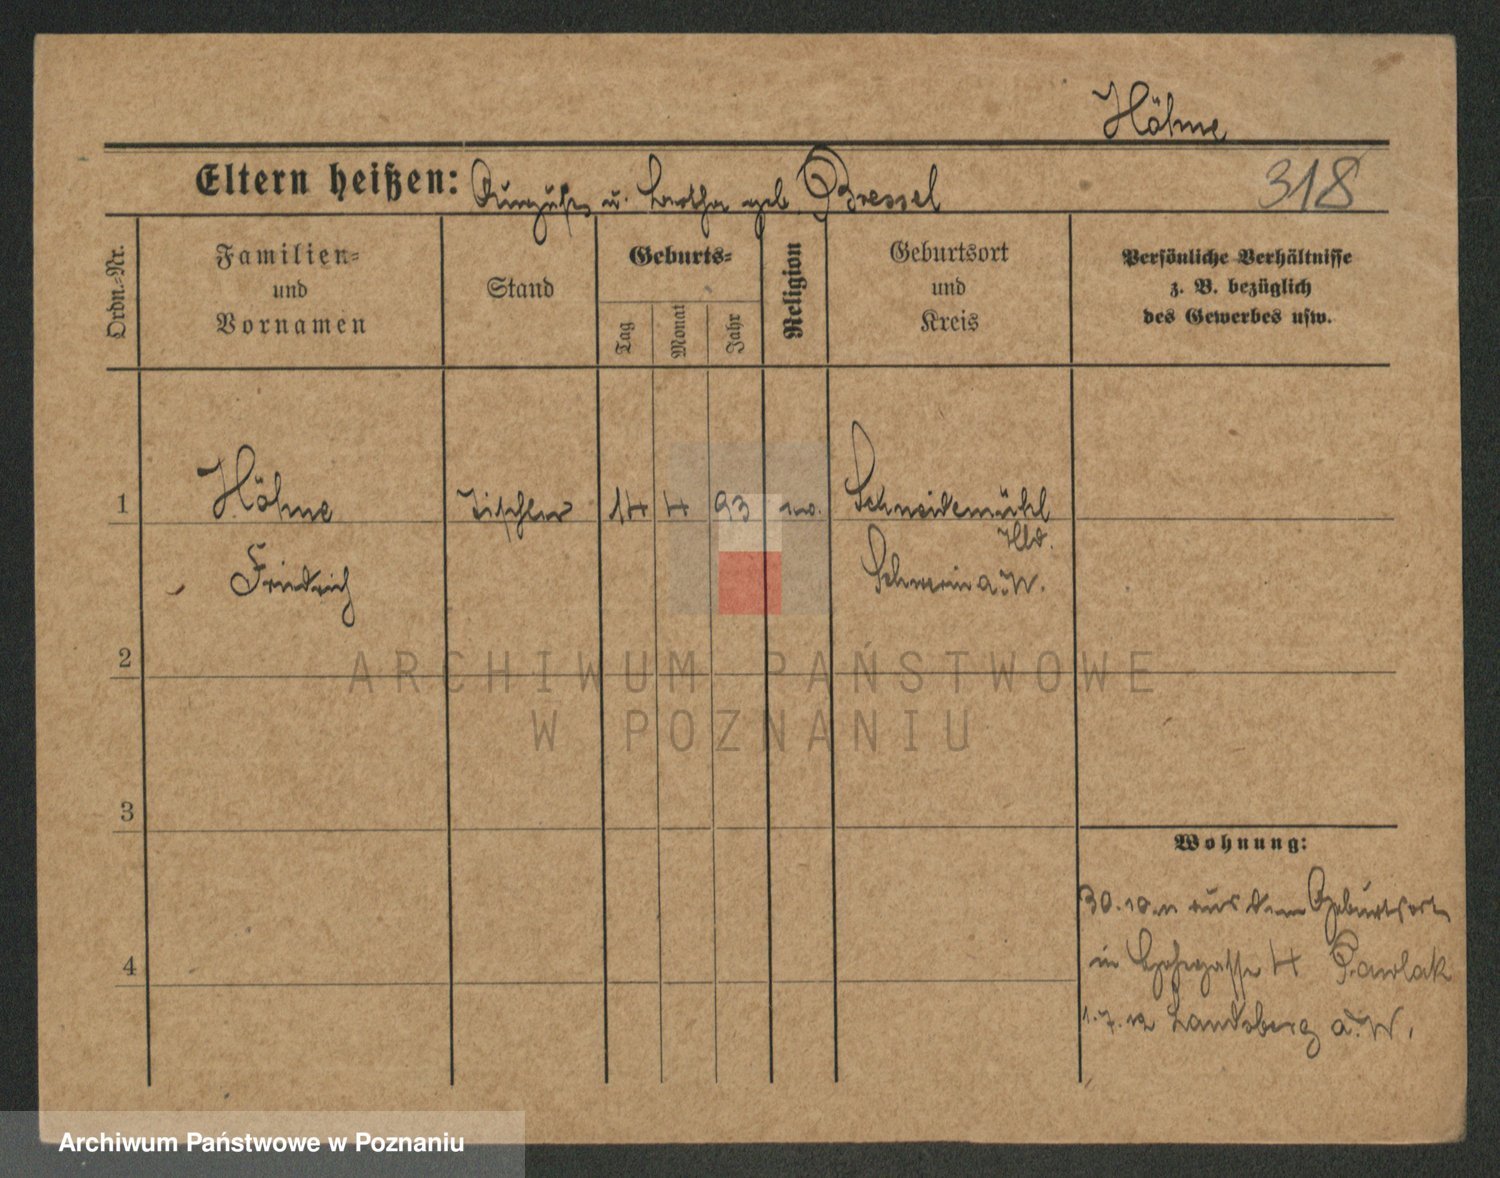 Höhne
Eltern heißen: u. Bertha geb. Bressel
318
Ordn.-Nr.
Familien-
und
Vornamen
Stand
Geburts-
Tag
Monat
Jahr
Religion
Geburtsort
und
Kreis
Persönliche Verhältnisse
z. B. bezüglich
des Gewerbes usw.
1
Höhne
Tischler
14
4
93
ev.
Schneidemühl
Friedrich
Schwerin a. W.
2
ARCHIWUM PAŃSTWOWE
W POZNANIU
3
Wohnung:
30.10.11 aus dem Geburtsort
4
in 4 Pawlak
1.7.12 Landsberg a. W.
Archiwum Państwowe w Poznaniu